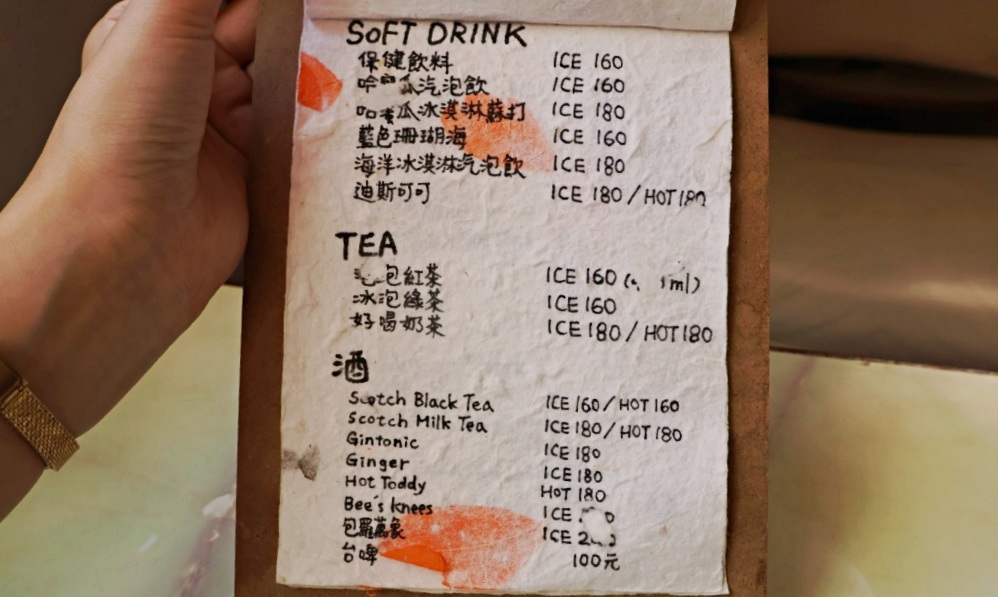 SOFT DRINK
保健飲料 ICE 160
哈 瓜汽泡飲 ICE 160
瓜冰淇淋蘇打 ICE 180
藍色珊瑚海 ICE 160
海洋冰淇淋汽泡飲 ICE 180
迪斯可可 ICE 180 / HOT 180
TEA
泡紅茶 ICE 160 ( ml)
冰泡綠茶 ICE 160
好喝奶茶 ICE 180 / HOT 180
酒
Scotch Black Tea ICE 160 / HOT 160
Scotch Milk Tea ICE 180 / HOT 180
Gintonic ICE 180
Ginger ICE 180
Hot Toddy HOT 180
Bee's knees ICE
包羅萬象 ICE
台啤 100元